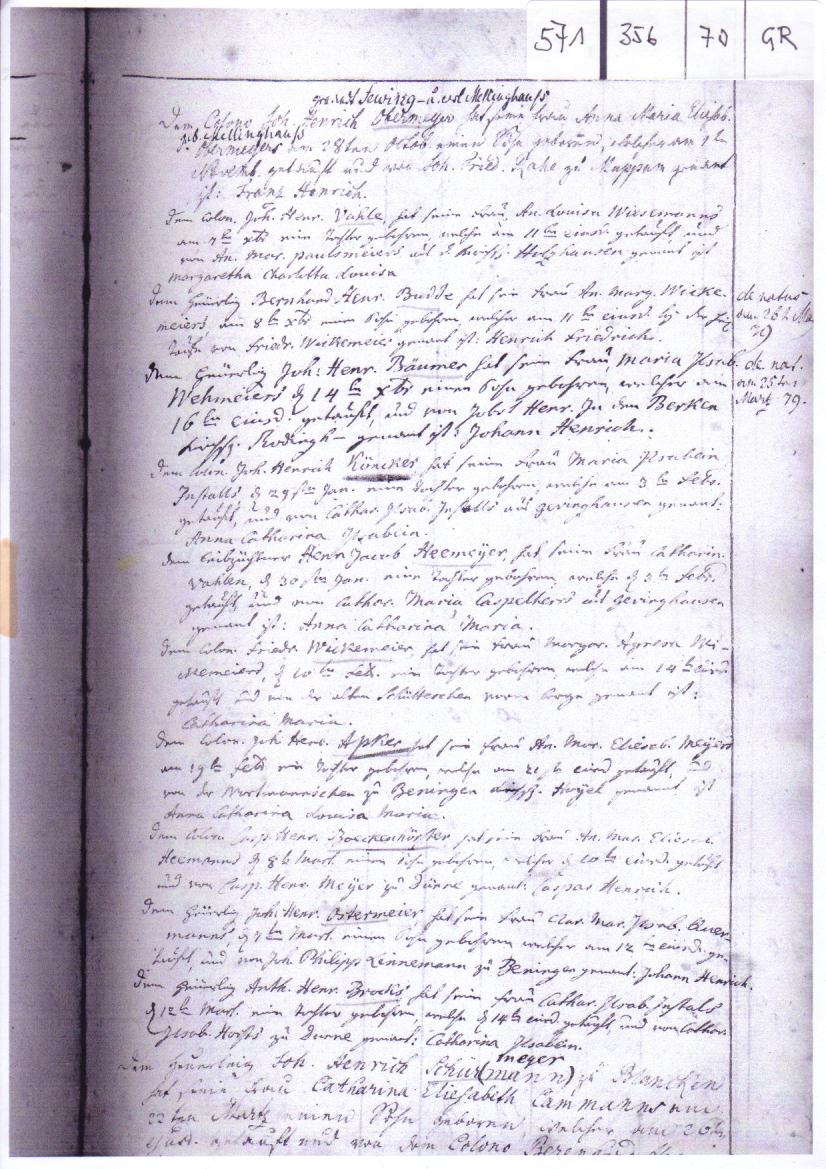 571 356 70 GR
Dem Colono Joh. Henrich Obermeyer hat seine Frau Anna Maria Elisab.
geb. Mellinghauß
Obermeyers am 28ten Octob. einen Sohn geboren, welcher am 1ten
Novemb. getauft und von Joh. Fried. Rahe zu genant
ist: Franz Henrich.
dem Colon. Joh. Henr. Vahle, hat seine Frau, An. Louisa Wiesemanns
am 7ten xbr eine Tochter gebohren, welche am 11ten eiusd. getauft, und
von An. Mar. paulsmeiers aus d. Kirchsp. Holzhausen genant ist
Margaretha Charlotta Louisa
dem Heuerling Bernhard Henr. Budde hat sein Frau An. Marg. Wicke-
meiers, am 8ten xbr einen Sohn gebohren welcher am 11ten eiusd. bey der
taufe von Friedr. Wickemeier genant ist: Henrich Friedrich.
denatus
den 26
79
dem Heuerling Joh: Henr. Bäumer hat sein Frau, Maria Ilsab.
Wehmeiers d 14ten xbr einen Sohn gebohren, welcher am
16ten eiusd. getauft, und von Jobst Henr. In den Berken
Kirchsp. Rödingh- genant ist: Johann Henrich.
de nat.
am 25ten
Mart 79.
dem Colon. Joh. Henrich Köncker hat seine Frau Maria Ilsabein
Installs d 29sten Jan. eine Tochter gebohren, welche am 3ten Febr.
getauft, und von Cathar. Ilsab. Installs aus Gevinghausen genant:
Anna Catharina Ilsabein.
dem Leibzüchter Henr. Jacob Heemeyer, hat seine Frau Catharin.
Vahlen, d 30sten Jan. eine Tochter gebohren, welche d 3ten Febr.
getauft und von Cathar. Maria Caspelherrs aus Gevinghausen
genant ist: Anna Catharina Maria.
dem Colon. Friedr. Wickemeier, hat sein Frau Margar. Agnesa Wi-
kemeiers, d 10ten Feb. eine Tochter gebohren, welche am 14ten eiusd.
getauft und von der alten Schütteschen vorm Berge genant ist:
Catharina Maria.
dem Colon. Joh Henr. Apker hat sein Frau An. Mar. Eliesab. Meyers
am 19ten Febr. ein Tochter gebohren, welche am 21ten eiusd getauft, und
von der Wortmannschen zu Beningen Kirchsp. Hoyel genant ist
Anna Catharina Louisa Maria.
dem Colon Casp. Henr. Boeckenhöfter hat sein Frau An. Mar. Eliesab.
Heemanns d 8ten Mart. einen Sohn gebohren, welcher d 10ten eiusd. getauft
und von Casp. Henr. Meyer zu Dünne genant: Caspar Henrich.
dem Heuerling Joh: Henr. Ostermeier hat sein Frau Clar. Mar. Ilsab. Quer-
manns, d 7ten Mart. einen Sohn gebohren welcher am 12ten eiusd. ge-
tauft, und von Joh Philipp Linnemann zu Beningen genant: Johann Henrich.
dem Heuerling Anth. Henr. Brocks hat sein Frau Cathar. Ilsab. Instals
d 12ten Mart. ein Tochter gebohren, welche d 14ten eiusd. getauft und von Cathar.
Ilsab. Horsts zu Dünne genant: Catharina Ilsabein.
Dem Heuerling Joh. Henrich Schür(mann) meyer zu Blancken
hat seine Frau Catharina Eliesabeth Tammanns am
22ten Martz einen Sohn geboren, welcher am 26ten
eiusd. getauft und von dem Colono